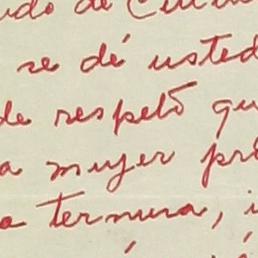 de
se dé usted
de respeto qu
a mujer pr
a ternura, i